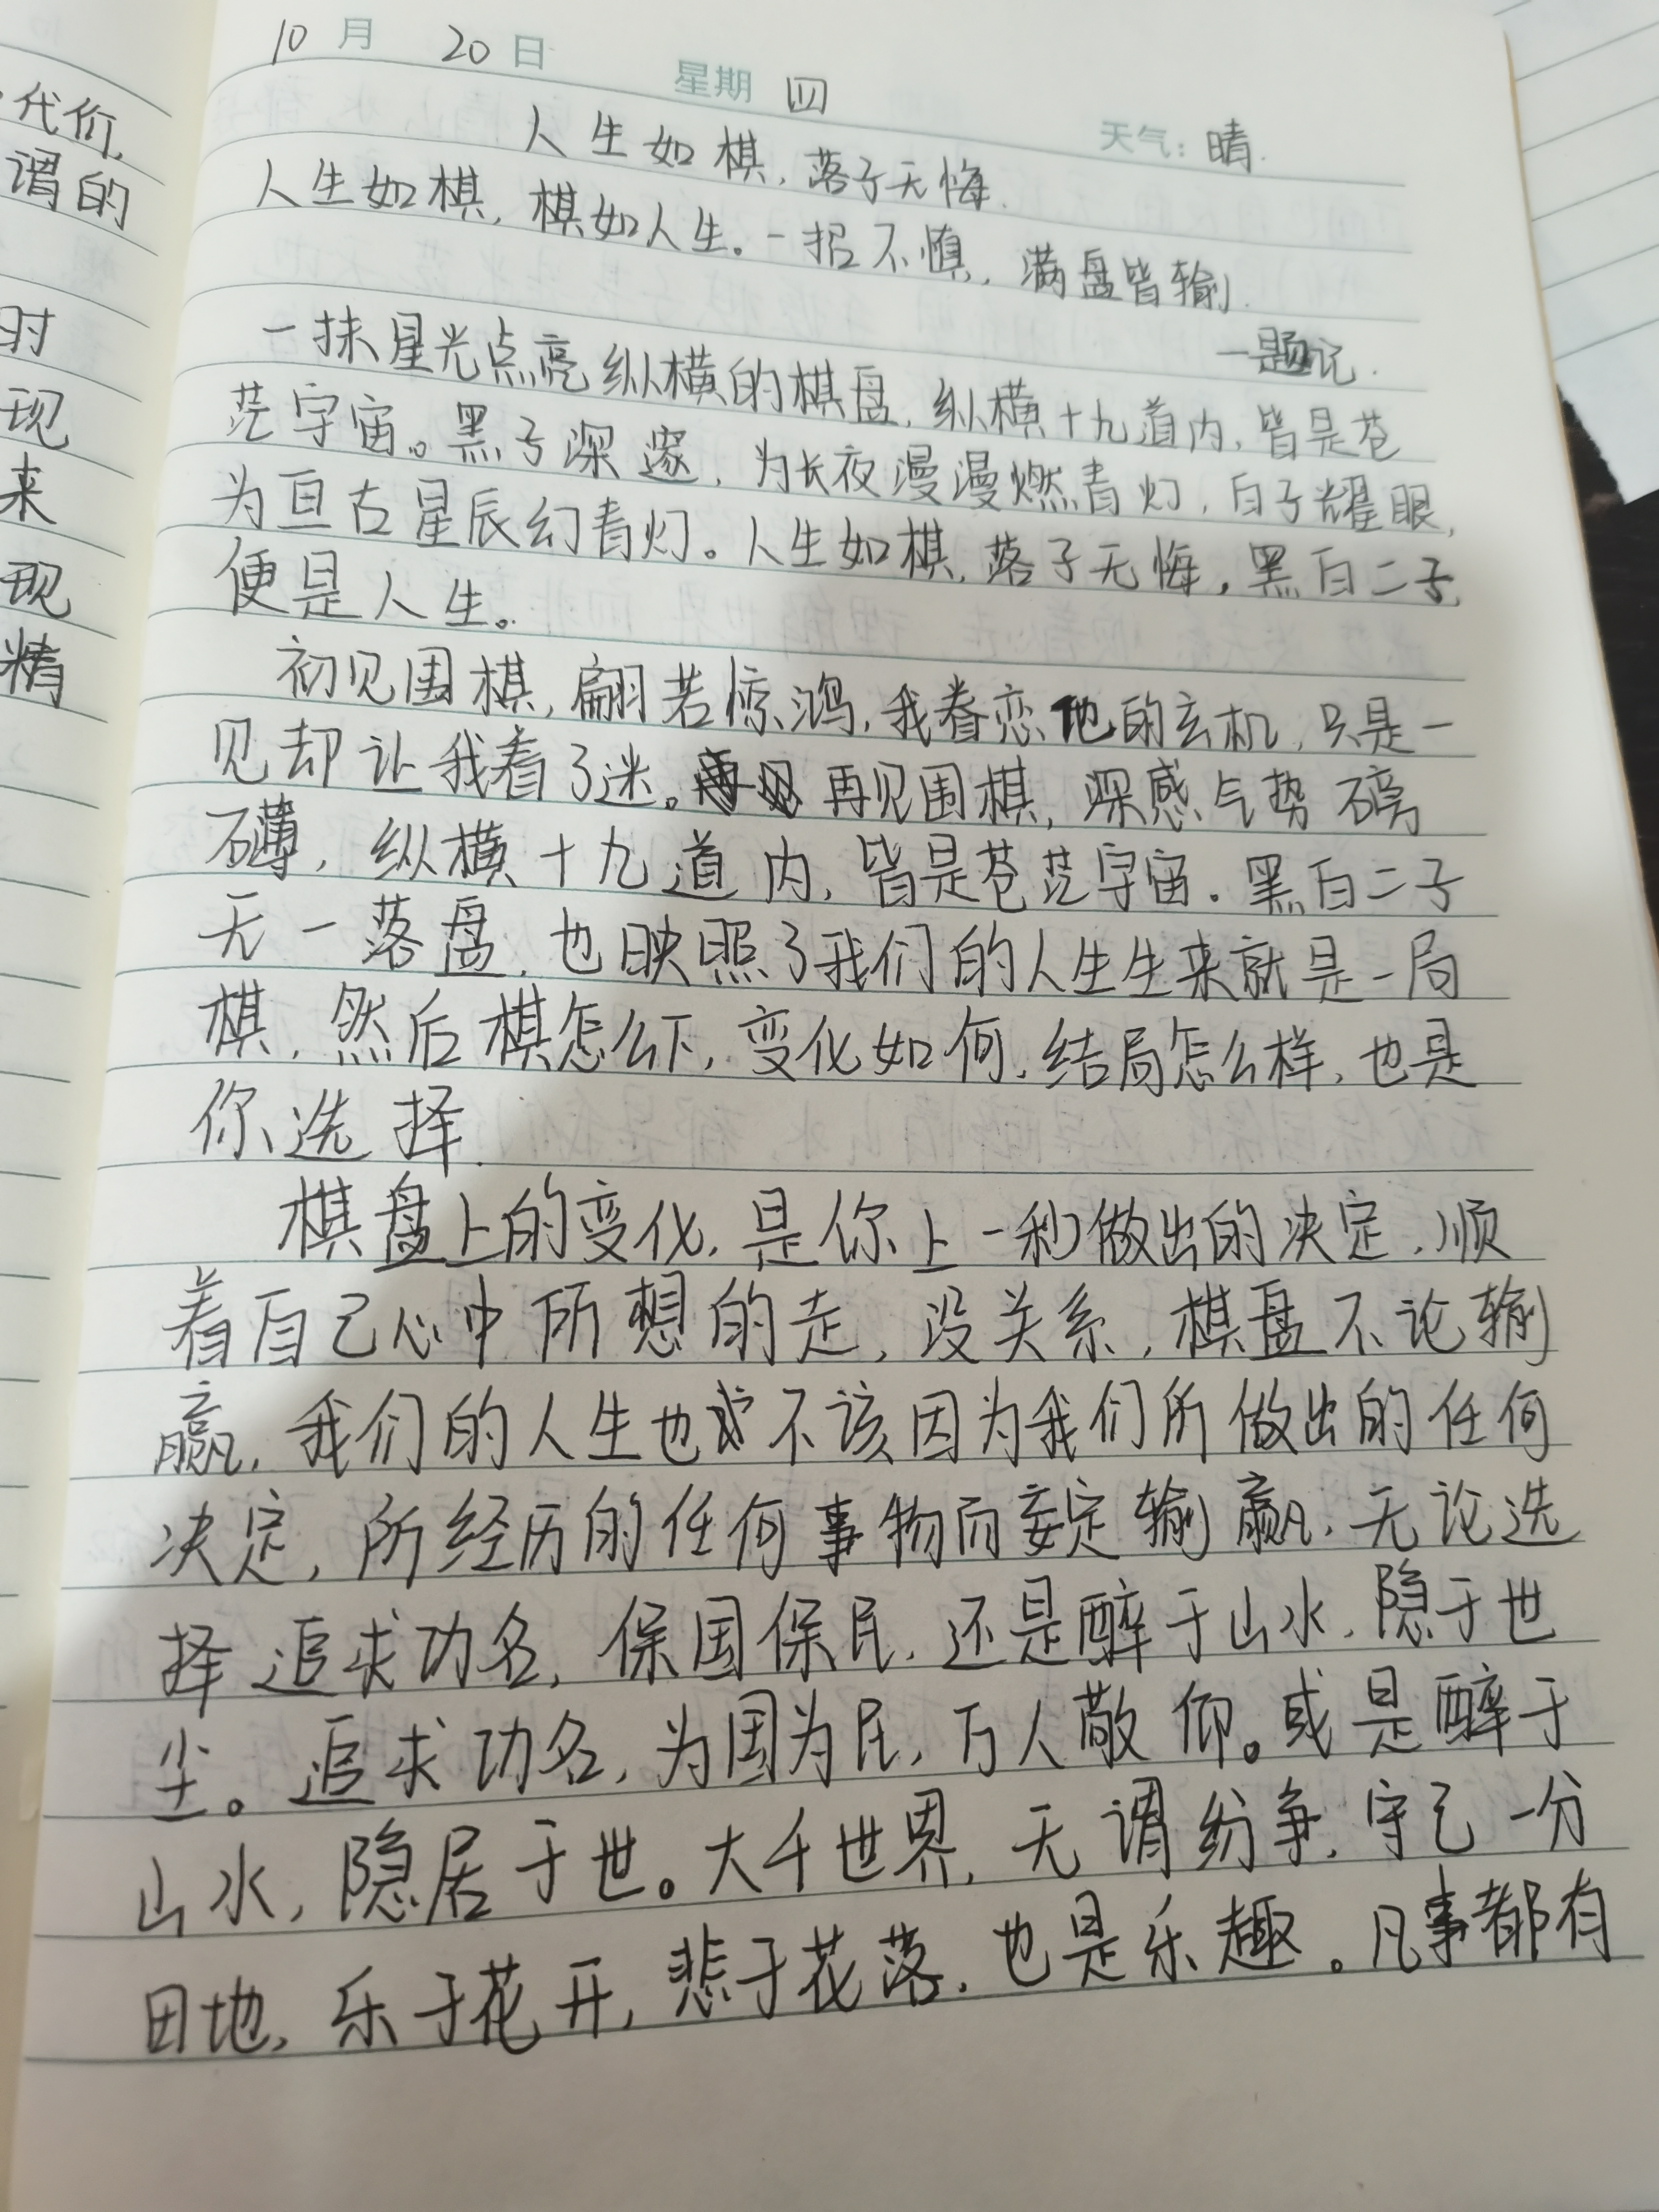 代价,
谓的
时
现
来
现
精
10月 20日 星期四 天气:晴.
人生如棋,落子无悔.
人生如棋,棋如人生。一招不慎,满盘皆输.
一题记.
一抹星光点亮纵横的棋盘,纵横十九道内,皆是苍
茫宇宙。黑子深邃,为长夜漫漫燃青灯,白子耀眼,
为亘古星辰幻青灯。人生如棋,落子无悔,黑白二子,
便是人生。
初见围棋,翩若惊鸿,我眷恋他的玄机,只是一
见却让我着了迷。再见围棋,深感气势磅
礴,纵横十九道内,皆是苍茫宇宙.黑白二子
无一落盘,也映照了我们的人生生来就是一局
棋,然后棋怎么下,变化如何,结局怎么样,也是
你选择.
棋盘上的变化,是你上一秒做出的决定,顺
着自己心中所想的走,没关系,棋盘不论输
赢,我们的人生也不该因为我们所做出的任何
决定,所经历的任何事物而妄定输赢,无论选
择追求功名,保国保民,还是醉于山水,隐于世
尘。追求功名,为国为民,万人敬仰。或是醉于
山水,隐居于世。大千世界,无谓纷争,守己一分
田地,乐于花开,悲于花落,也是乐趣。凡事都有